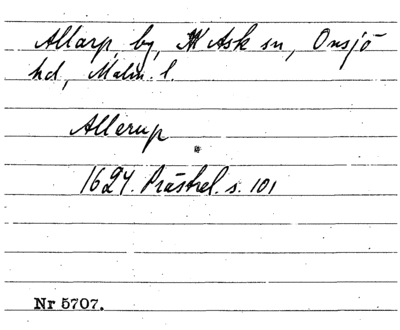 Allarp, by, N Ask sn, Onsjö
hd, Malm. l.
Allerup
1624. Prästrel. s. 101
Nr 5707.